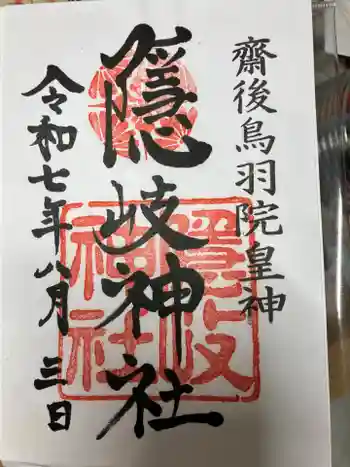 齋後鳥羽院皇神
隱岐神社
令和七年八月三日
隠岐
神社